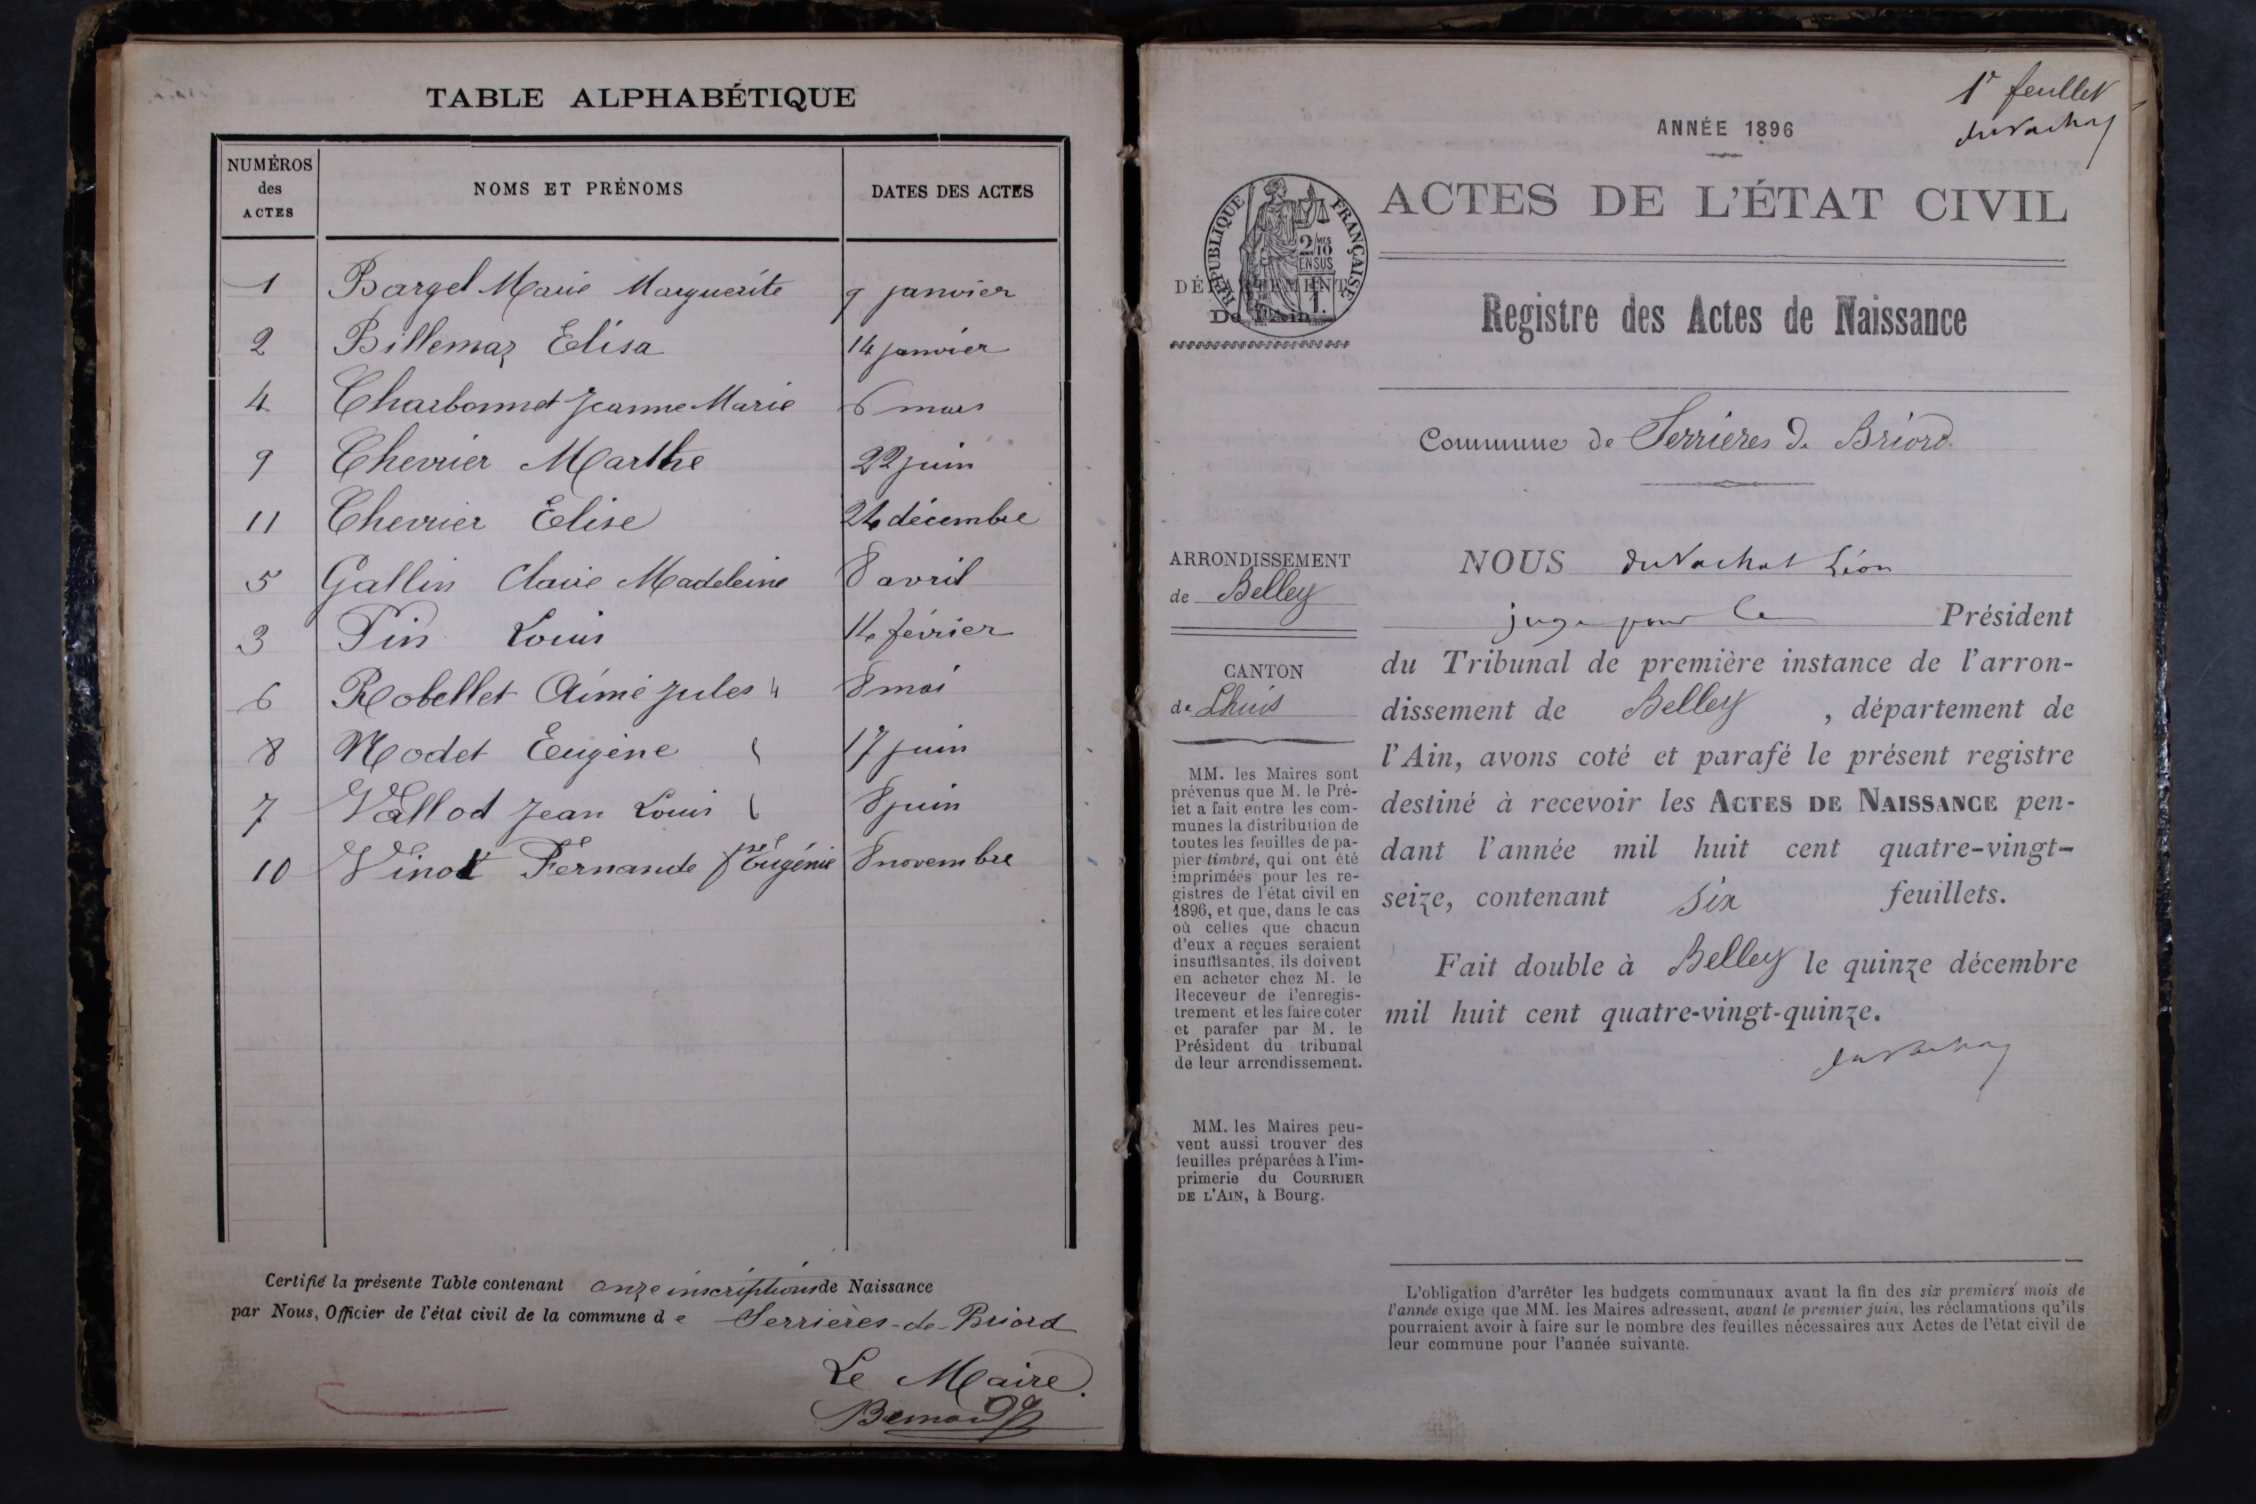 TABLE ALPHABÉTIQUE
NUMÉROS des ACTES NOMS ET PRÉNOMS DATES DES ACTES
1 Bargel Marie Marguerite 9 janvier
2 Billemaz Elisa 14 janvier
4 Charbonnet Jeanne Marie 6 mars
9 Chevrier Marthe 22 juin
11 Chevrier Elise 24 décembre
5 Gallin Claire Madeleine 8 avril
3 Pin Louis 14 février
6 Robellet Aimé Jules 8 mai
8 Rodet Eugène 17 juin
7 Vallod Jean Louis 8 juin
10 Vinot Fernande Eugénie 8 novembre
Certifié la présente Table contenant onze inscriptions de Naissance
par Nous, Officier de l'état civil de la commune de Serrières-de-Briord
Le Maire.
1r feuillet
duVachat
ANNÉE 1896
ACTES DE L'ÉTAT CIVIL
RÉPUBLIQUE FRANÇAISE
2/10 MES
EN SUS
DÉPARTEMENT
De l'Ain
Registre des Actes de Naissance
Commune de Serrières de Briord
ARRONDISSEMENT
de Belley
CANTON
de Lhuis
MM. les Maires sont
prévenus que M. le Pré-
fet a fait entre les com-
munes la distribution de
toutes les feuilles de pa-
pier timbré, qui ont été
imprimées pour les re-
gistres de l'état civil en
1896, et que, dans le cas
où celles que chacun
d'eux a reçues seraient
insuffisantes, ils doivent
en acheter chez M. le
Receveur de l'enregis-
trement et les faire coter
et parafer par M. le
Président du tribunal
de leur arrondissement.
MM. les Maires peu-
vent aussi trouver des
feuilles préparées à l'im-
primerie du COURRIER
DE L'AIN, à Bourg.
NOUS duVachat Léon
juge pour le Président
du Tribunal de première instance de l'arron-
dissement de Belley, département de
l'Ain, avons coté et parafé le présent registre
destiné à recevoir les ACTES DE NAISSANCE pen-
dant l'année mil huit cent quatre-vingt-
seize, contenant six feuillets.
Fait double à Belley le quinze décembre
mil huit cent quatre-vingt-quinze.
duVachat
L'obligation d'arrêter les budgets communaux avant la fin des six premiers mois de
l'année exige que MM. les Maires adressent, avant le premier juin, les réclamations qu'ils
pourraient avoir à faire sur le nombre des feuilles nécessaires aux Actes de l'état civil de
leur commune pour l'année suivante.